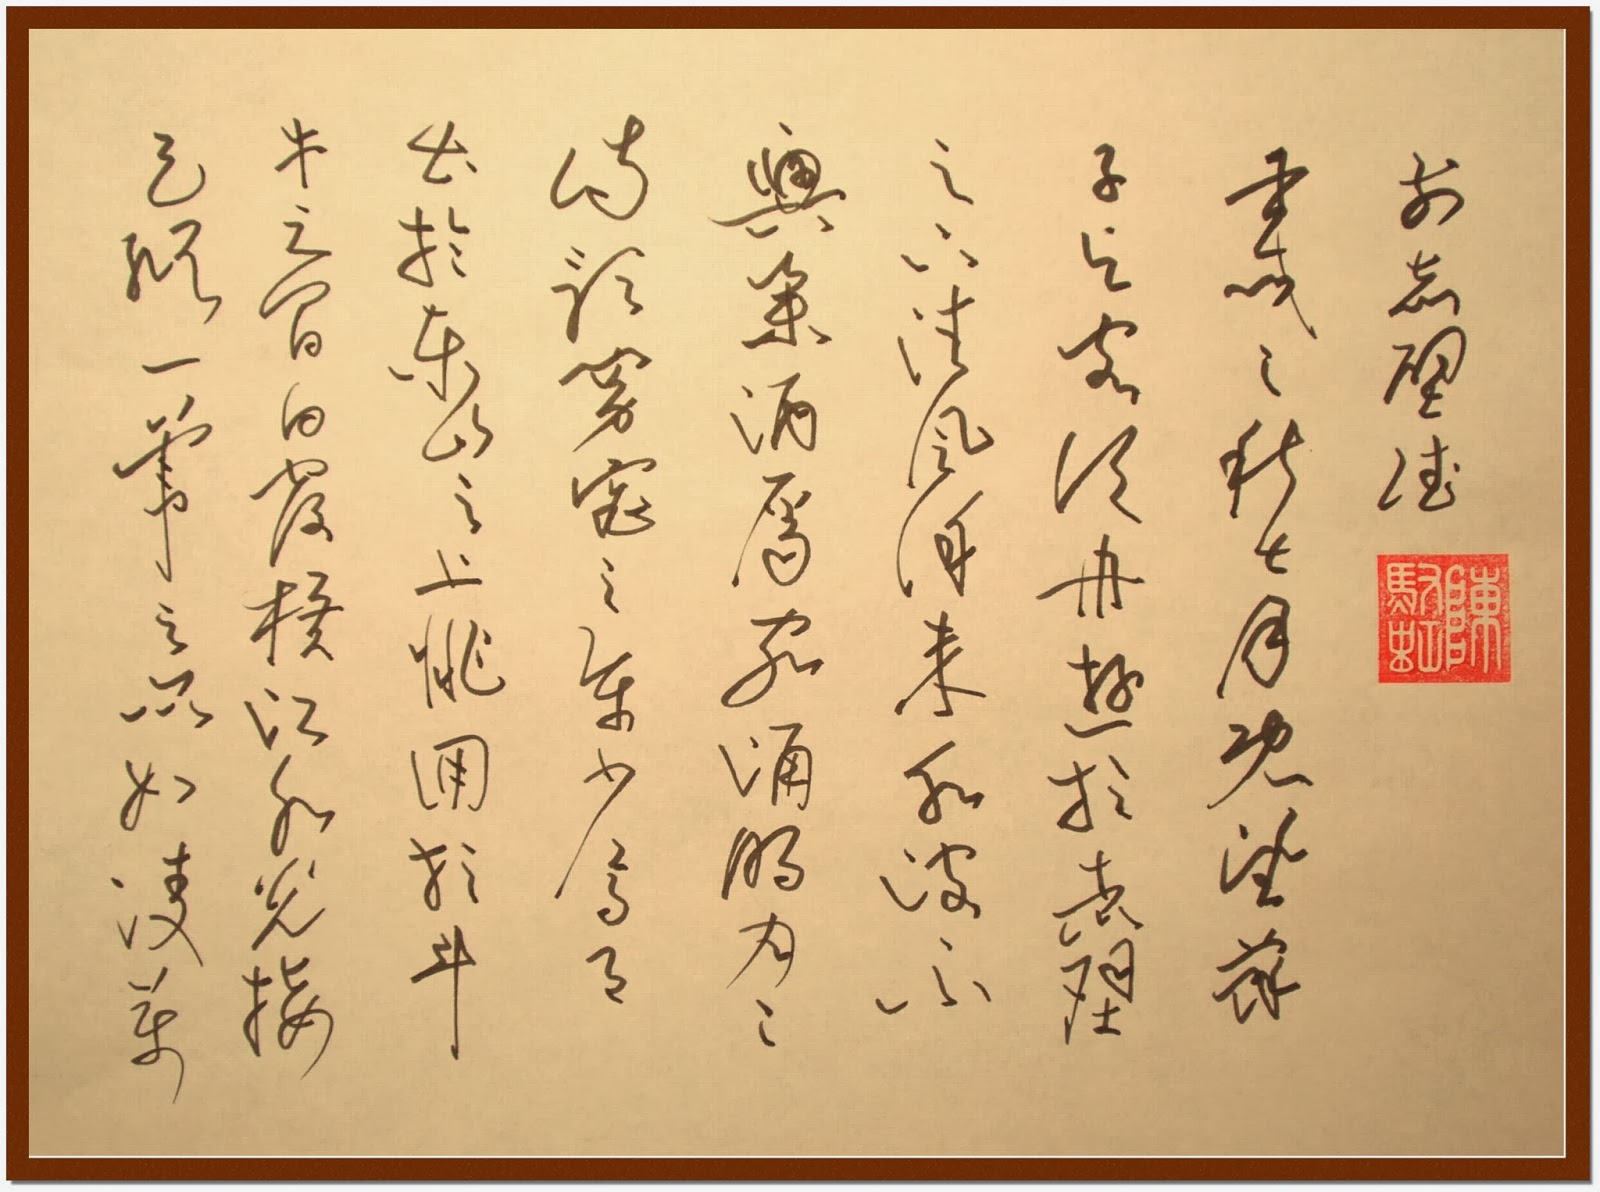 前赤壁賦
壬戌之秋七月既望蘇
子與客泛舟遊於赤壁
之下清風徐來水波不
興舉酒屬客誦明月之
詩歌窈窕之章少焉月
出於東山之上徘徊於斗
牛之間白露橫江水光接
天縱一葦之所如凌萬
陳